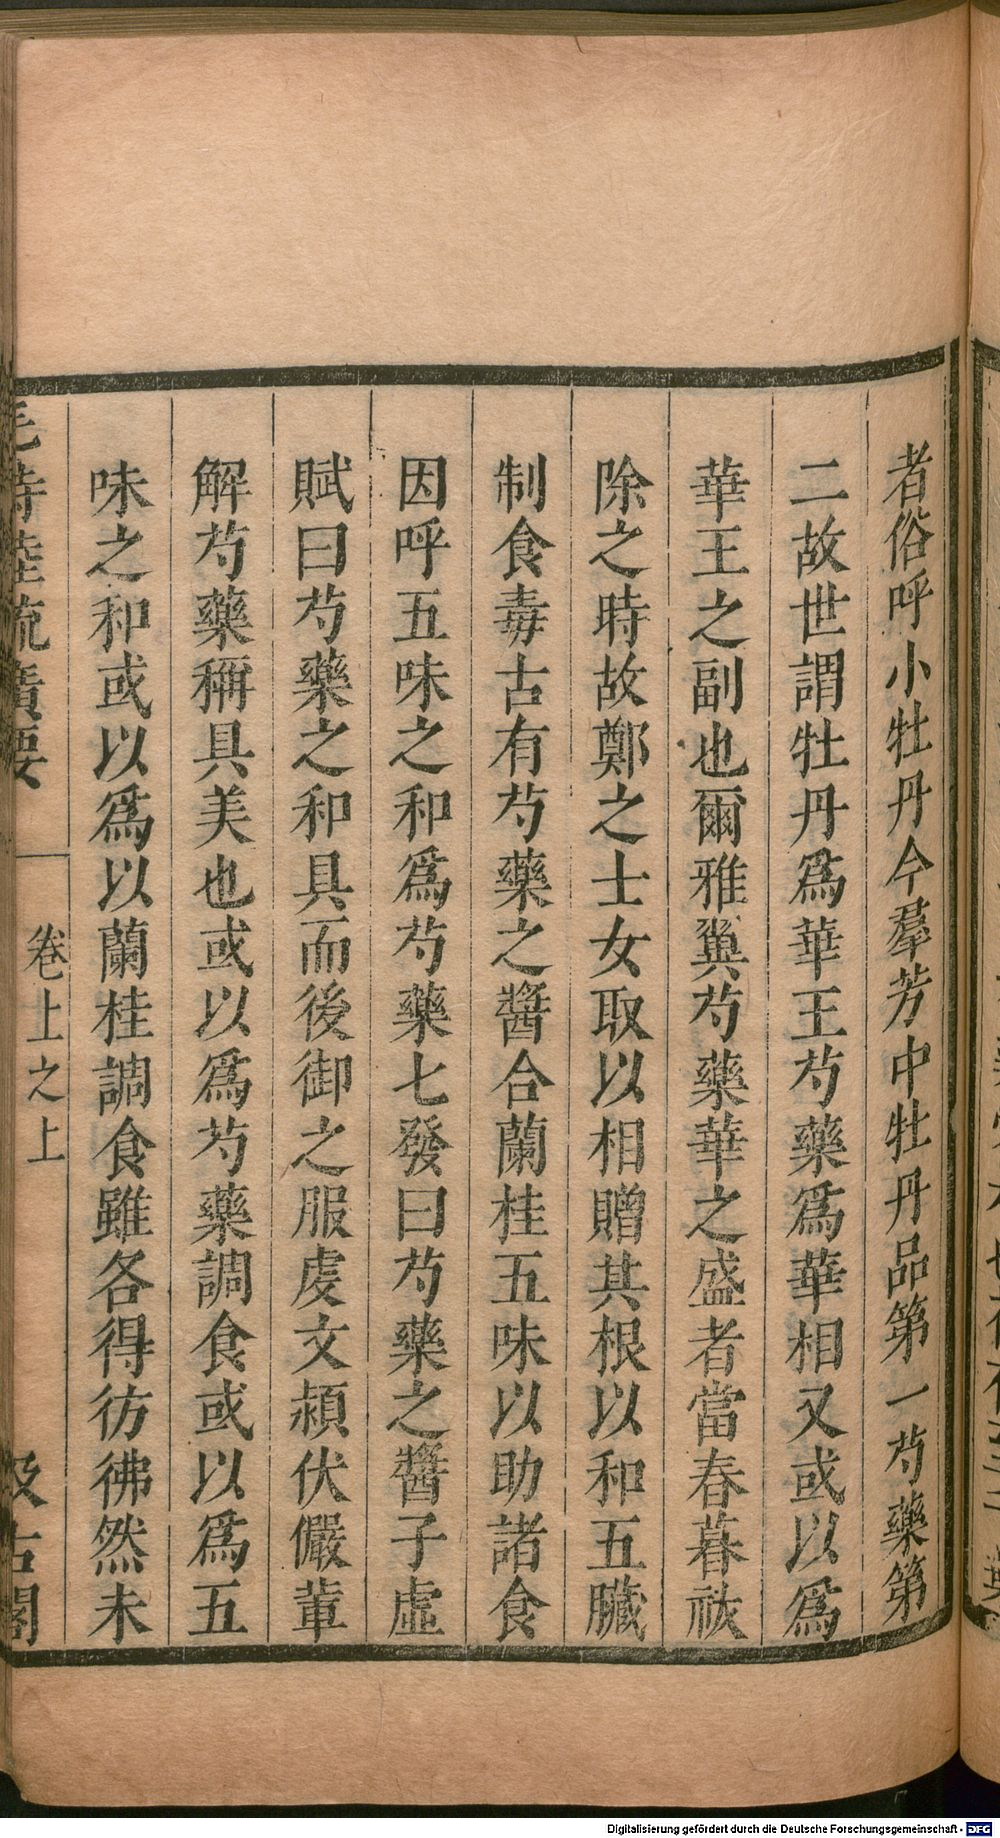 者俗呼小牡丹今羣芳中牡丹品第一芍藥第
二故世謂牡丹爲華王芍藥爲華相又或以爲
華王之副也爾雅翼芍藥華之盛者當春暮祓
除之時故鄭之士女取以相贈其根以和五臟
制食毒古有芍藥之醬合蘭桂五味以助諸食
因呼五味之和爲芍藥七發曰芍藥之醬子虛
賦曰芍藥之和具而後御之服虔文潁伏儼輩
解芍藥稱具美也或以爲芍藥調食或以爲五
味之和或以爲以蘭桂調食雖各得彷彿然未
毛詩陸疏廣要
卷上之上
汲古閣
Digitalisierung gefördert durch die Deutsche Forschungsgemeinschaft - DFG